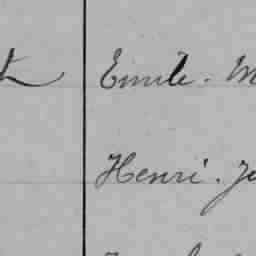 Emile. M
Henri. Je